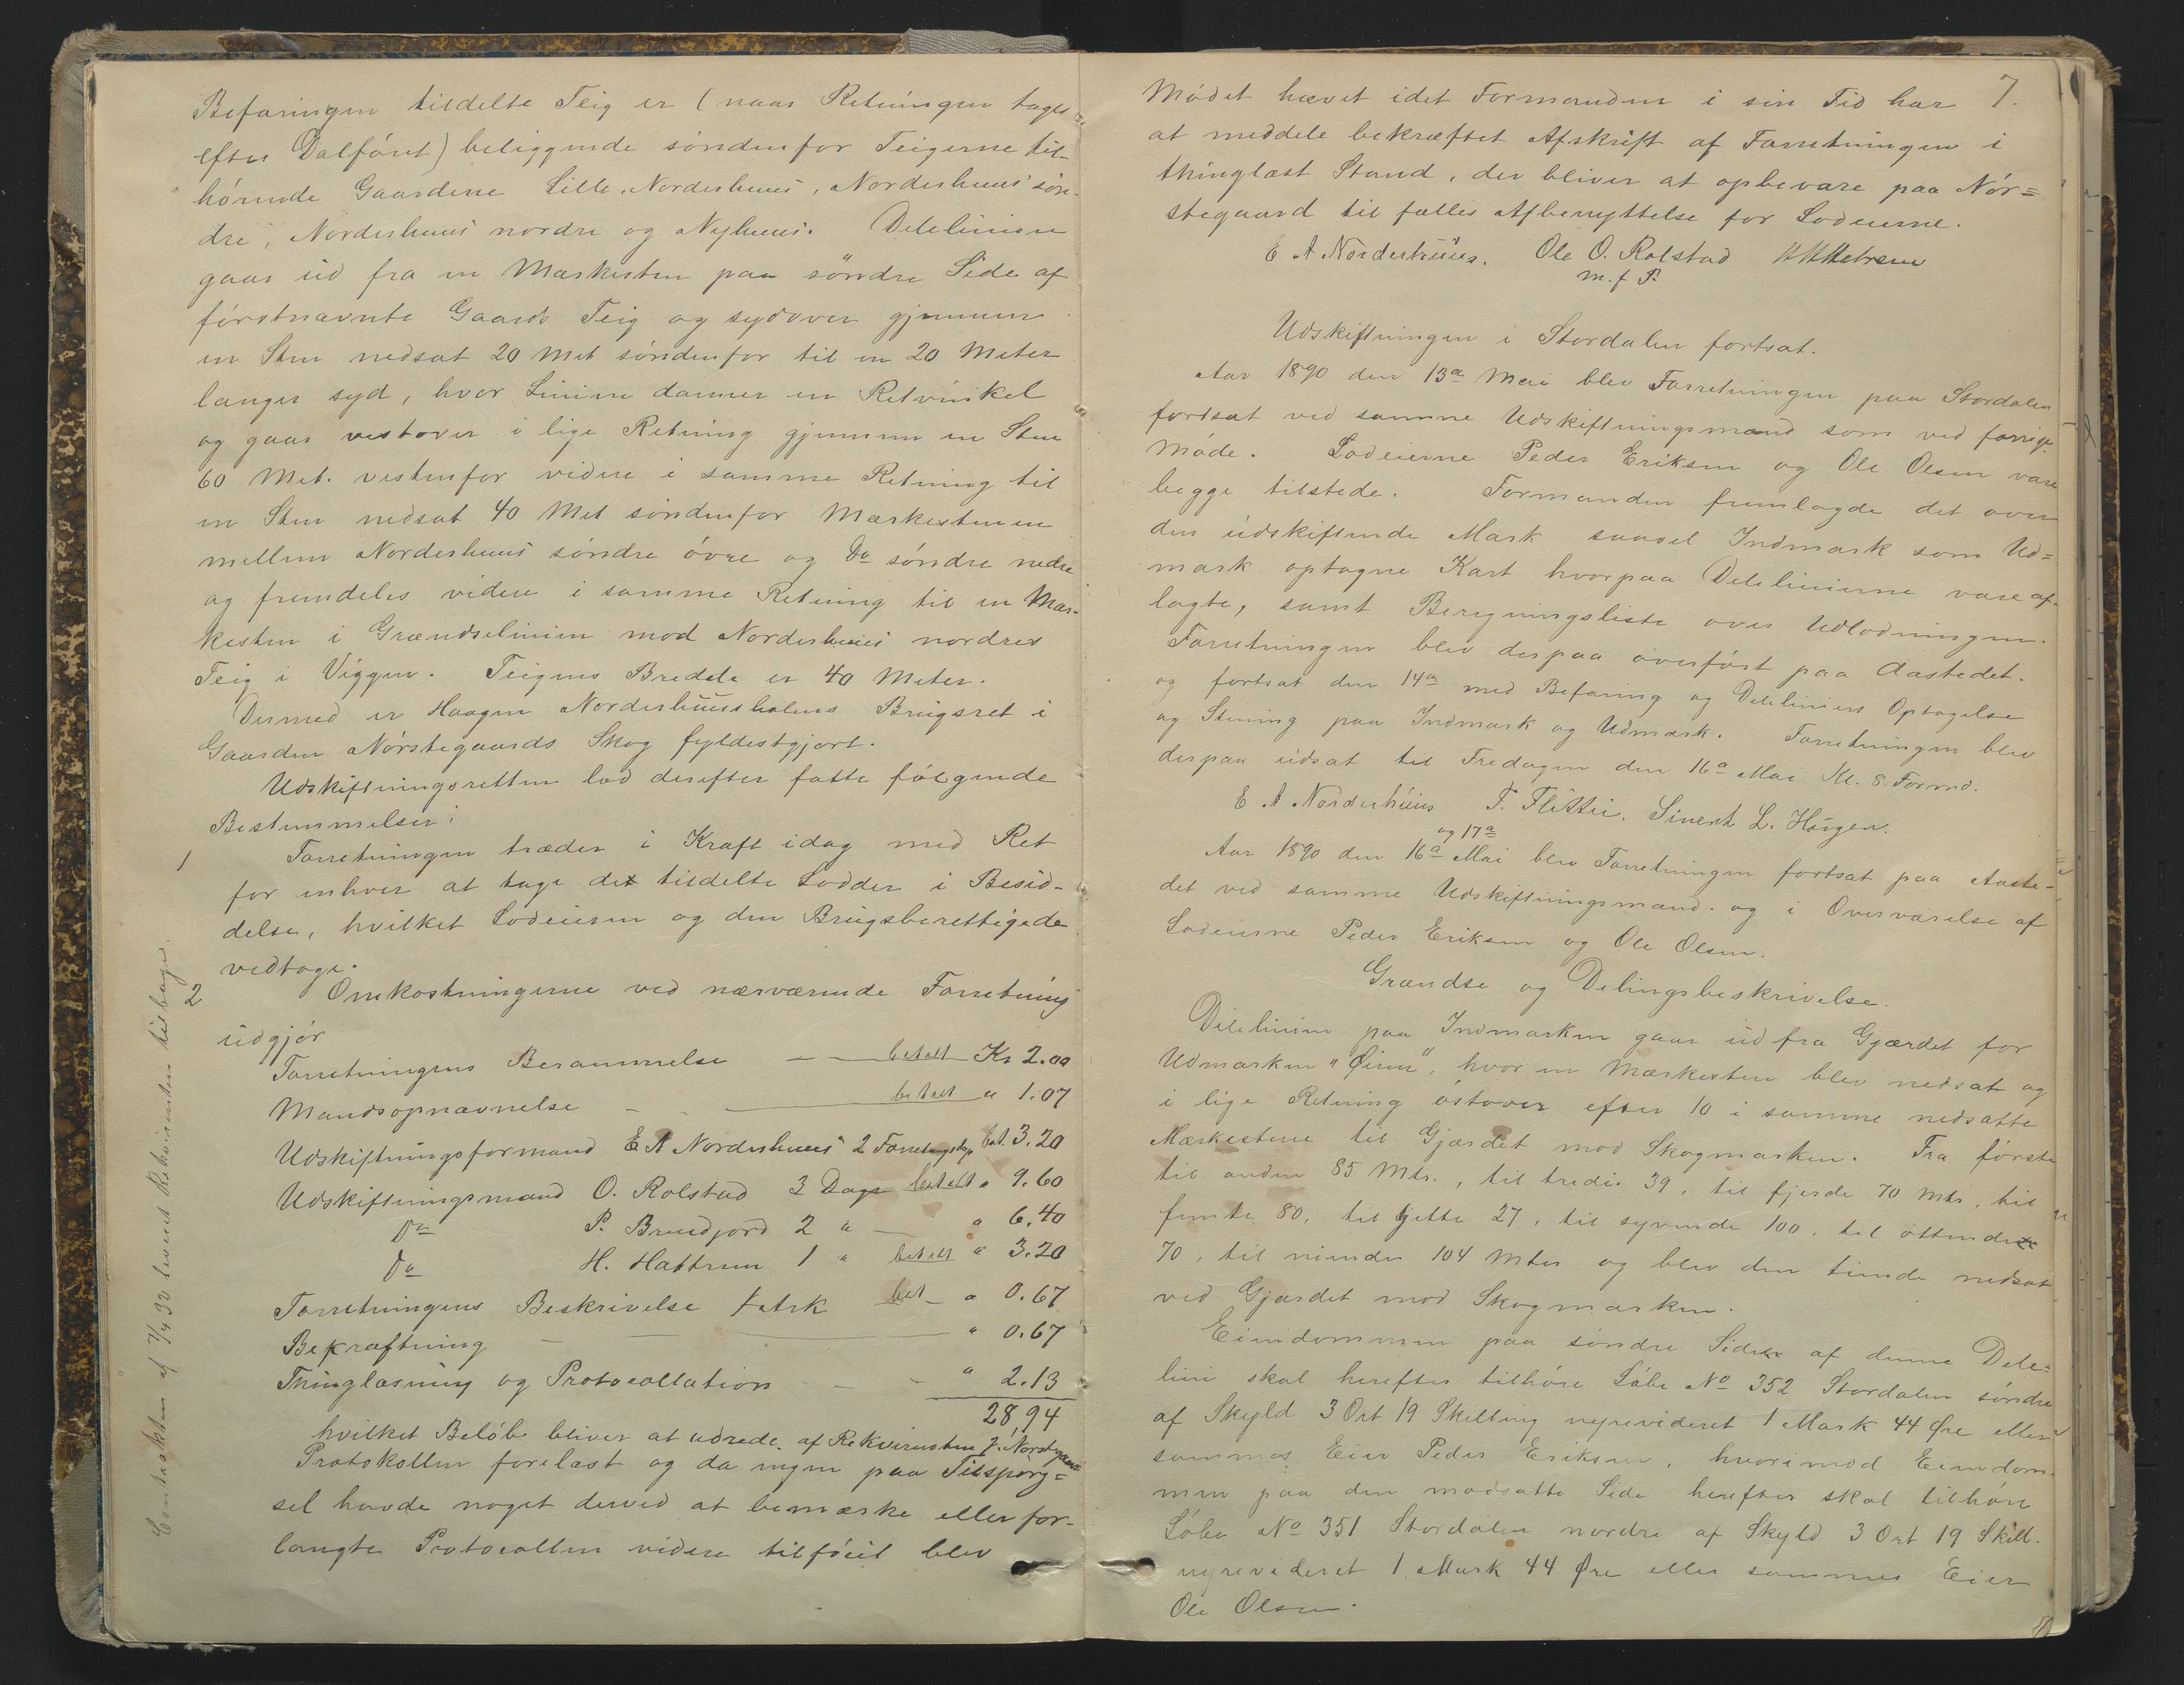 Befaringen tildelte Teig er (naar Retningen tages
efter Dalföret) beliggende söndenfor Teigerne til-
hörende Gaardene Lille Norderhuus, Norderhuus søn-
dre, Norderhuus nordre og Nyhuus. Delelinien
gaar ud fra en Mærkesten paa söndre Side af
förstnævnte Gaards Teig og sydover gjennem
en Sten nedsat 20 Met söndenfor til en 20 Meter
længer syd, hvor Linien danner en Retvinkel
og gaar vestover i lige Retning gjennem en Sten
60 Met. vestenfor videre i samme Retning til
en Sten nedsat 40 Met söndenfor Mærkestenen
mellem Norderhuus söndre övre og Do söndre nedre
og fremdeles videre i samme Retning til en Mær-
kesten i Grændselinien mod Norderhuus nordres
Teig i Viggen. Teigens Bredde er 40 Meter.
Dermed er Haagen Norderhuusholens Brugsret i
Gaarden Nörstegaards Skog fyldestgjort.
Udskiftningsretten lod derefter fatte følgende
Bestemmelser:
1 Forretningen træder i Kraft idag med Ret
for enhver at tage det tildelte Lodder i Besid-
delse, hvilket Lodeieren og den Brugsberettigede
vedtage.
2 Omkostningerne ved nærværende Forretning
udgjör
Forretningens Berammelse betalt Kr 2.00
Mandsopnævnelse betalt " 1.07
Udskiftningsformand E A Norderhuus 2 Forretningsdage bet. 3.20
Udskiftningsmand O. Rolstad 3 Dage betalt " 9.60
Do P. Bruedjord 2 " " 6.40
Do H. Hattrem 1 " betalt " 3.20
Forretningens Beskrivelse 1 Ark bet " 0.67
Bekræftning " 0.67
Thinglæsning og Protocollation " 2.13
28,94
hvilket Beløb bliver at udrede af Rekvirenten J. Nörstegaard
Protokollen forelæst og da ingen paa Tilspörg=
sel havde noget derved at bemærke eller for-
langte Protocollen videre tilföiet blev
Contrakten af 7/4 30 levert Rekvirenten tilbage.
7.
Mödet hævet idet Formanden i sin Tid har
at meddele bekræftet Afskrift af Forretningen i
thinglæst Stand, der bliver at opbevare paa Nör=
stegaard til fælles Afbenyttelse for Lodeierne.
E A Norderhuus. Ole O. Rolstad H Hattrem
m. f P.
Udskiftningen i Stordalen fortsat.
Aar 1890 den 13de Mai blev Forretningen paa Stordalen
fortsat ved samme Udskiftningsmænd som ved forrige
Möde. Lodeierne Peder Eriksen og Ole Olsen vare
begge tilstede. Formanden fremlagde det over
den udskiftende Mark saavel Indmark som Ud=
mark optagne Kart hvorpaa Delelinierne vare af-
lagte, samt Beregningsliste over Udlodningen.
Forretningen blev derpaa overfört paa Aastedet.
og fortsat den 14de med Befaring og Deleliniers Optagelse
og Stening paa Indmark og Udmark. Forretningen blev
derpaa udsat til Fredagen den 16de Mai Kl. 8 Formd.
E A Norderhuus T. Flittie. Sivert L. Haugen.
og 17de
Aar 1890 den 16de Mai blev Forretningen fortsat paa Aaste-
det ved samme Udskiftningsmænd. og i Overværelse af
Lodeierne Peder Eriksen og Ole Olsen.
Grændse og Delingsbeskrivelse.
Delelinien paa Indmarken gaar ud fra Gjærdet for
Udmarken "Øiren", hvor en Mærkesten blev nedsat og
i lige Retning östover efter 10 i samme nedsatte
Mærkestene til Gjærdet mod Skogmarken. Fra förste
til anden 85 Mtr., til tredie 39, til fjerde 70 Mtr, til
femte 80, til sjette 27, til syvende 100, til ottende
70, til niende 104 Mter og blev den tiende nedsat
ved Gjærdet mod Skogmarken.
Eiendommen paa söndre Side af denne Dele=
linie skal herefter tilhöre Löbe No 352 Stordalen söndre
af Skyld 3 Ort 19 Skilling nyrevideret 1 Mark 44 Øre eller
sammes Eier Peder Eriksen, hvorimod Eiendom-
men paa den modsatte Side herefter skal tilhöre
Löbe No 351 Stordalen nordre af Skyld 3 Ort 19 Skill.
nyrevideret 1 Mark 44 Øre eller sammes Eier
Ole Olsen.